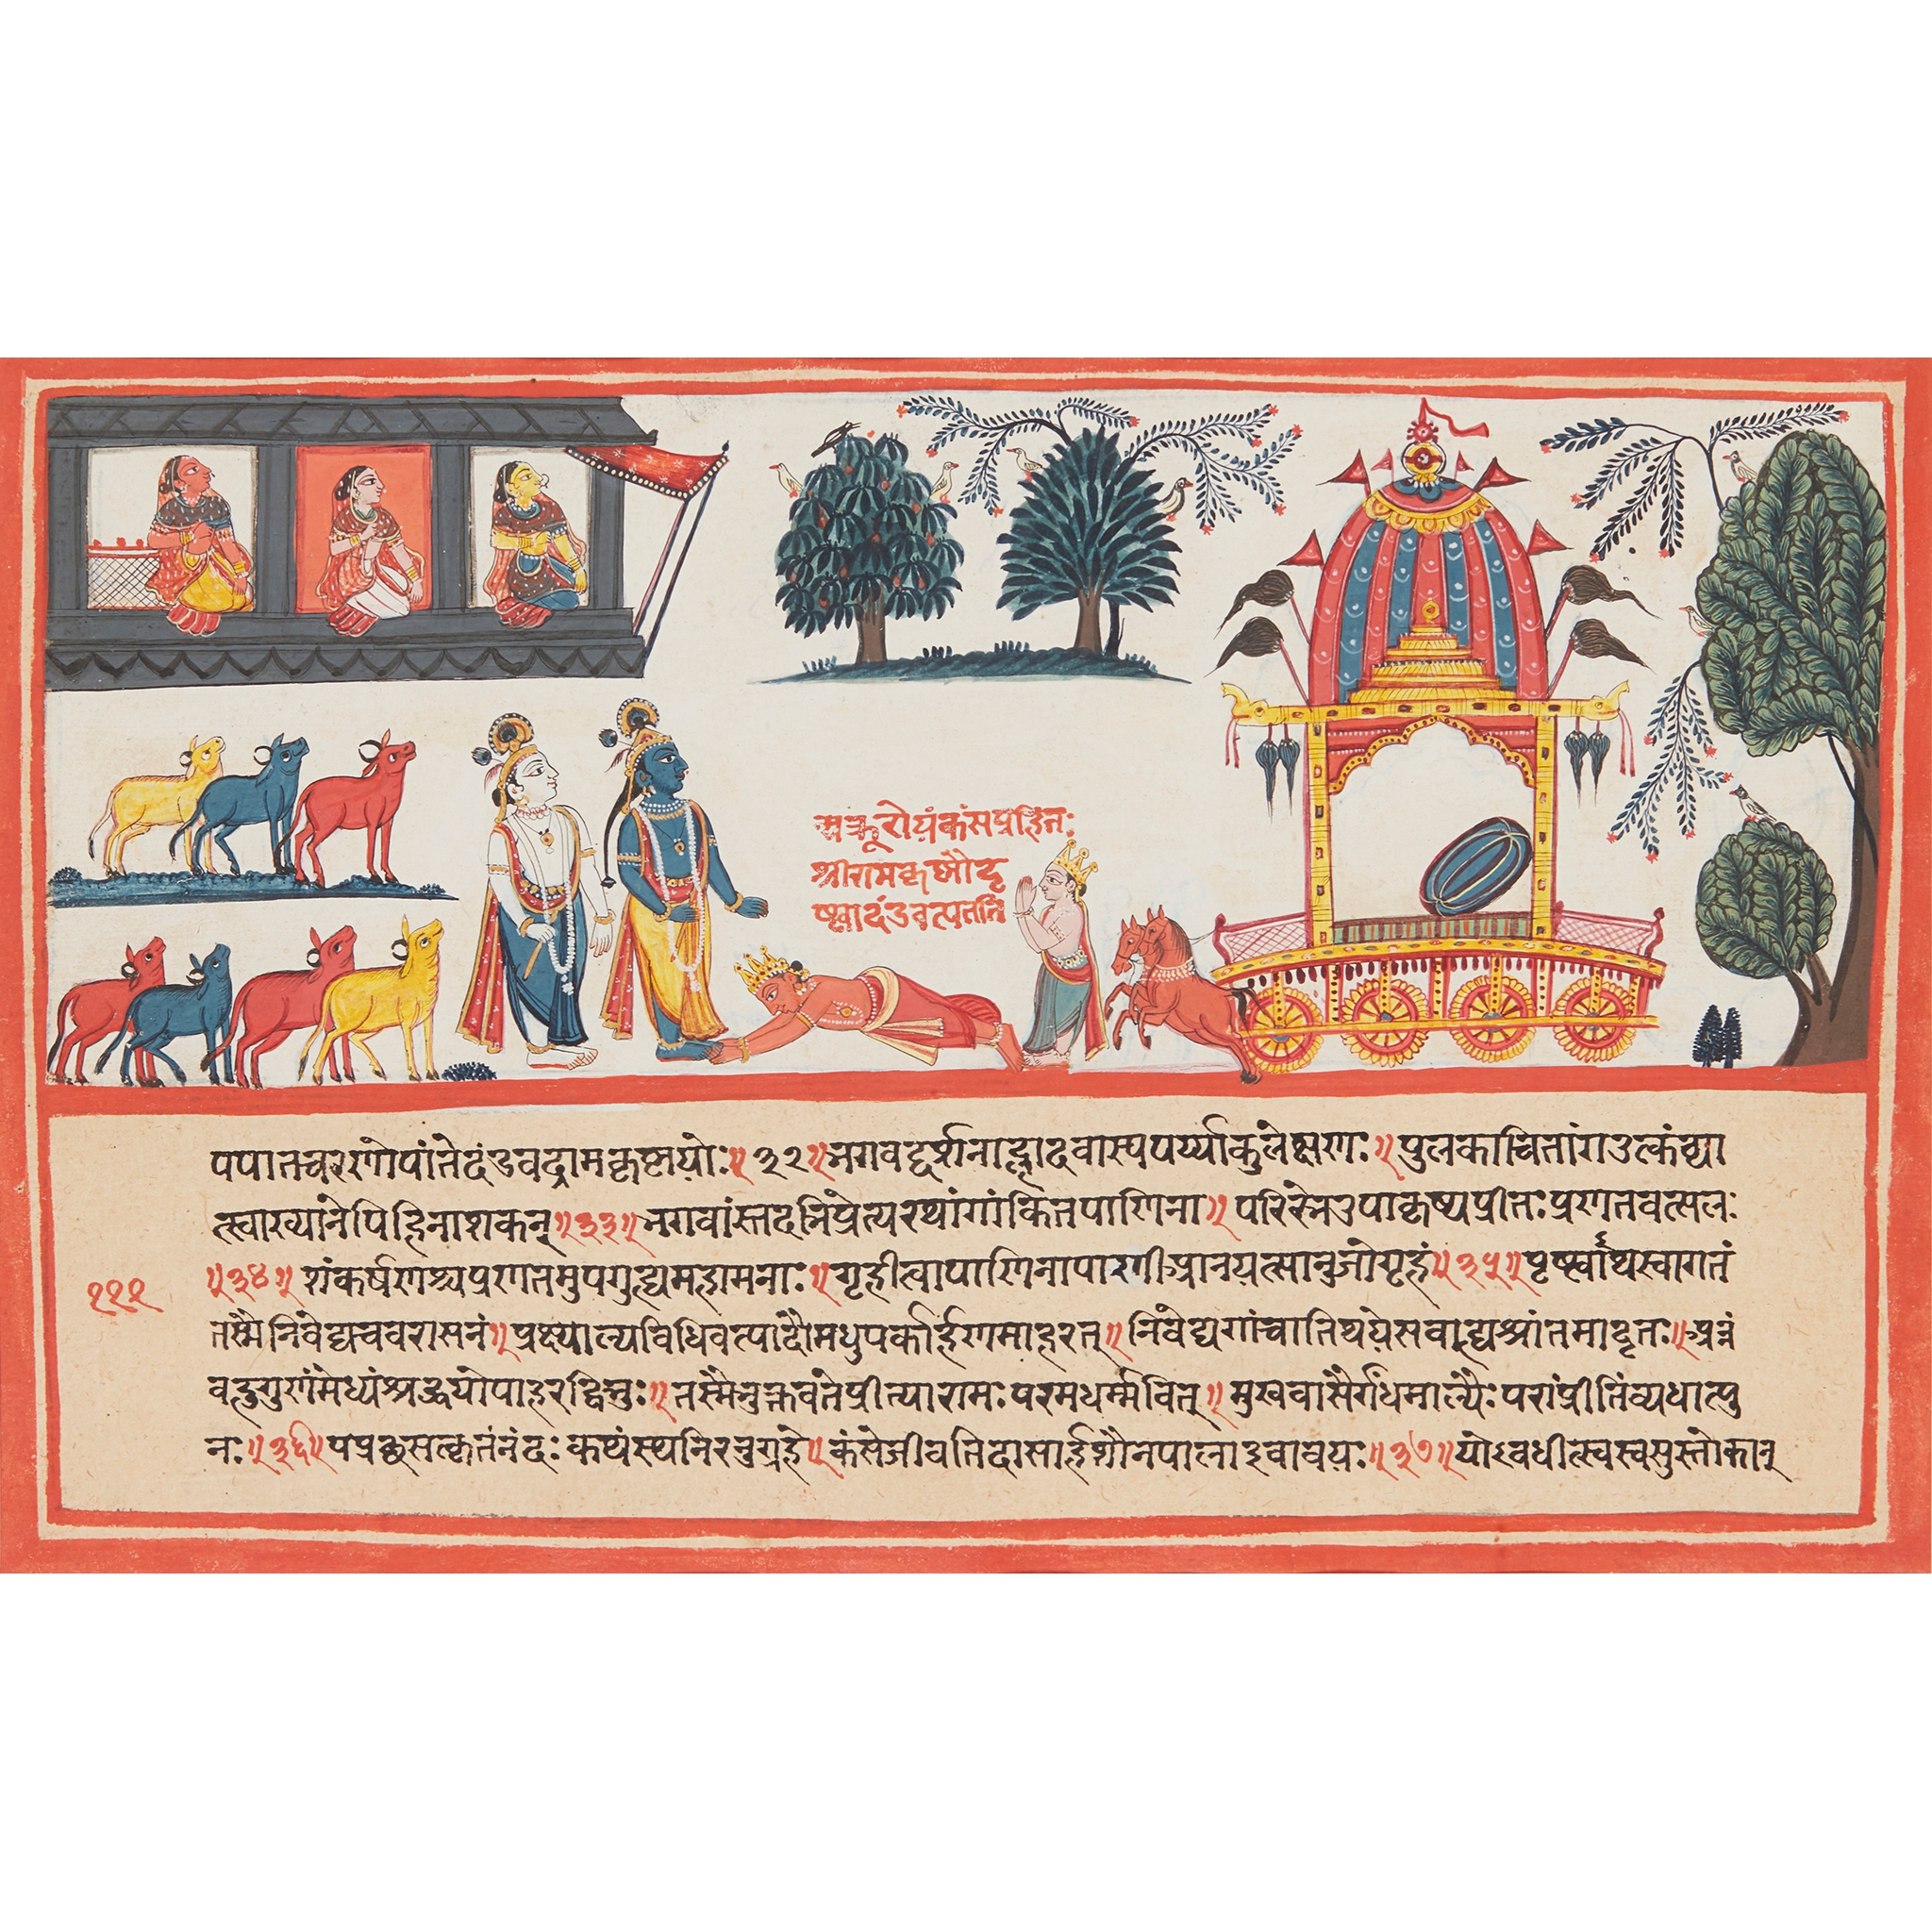 अक्रूरोयंकंसप्रहितः
श्रीरामकृष्णौदृ
ष्ट्वादंडवत्पतति
पपातचरणोपांतेदंडवद्रामकृष्णयोः॥३२॥भगवद्दर्शनाह्लादवास्पपर्य्याकुलेक्षणः॥पुलकाचितांगउत्कंठ्या
त्स्वाख्यानेपिहिनाशकन्॥३३॥भगवांस्तदभिप्रेत्यरथांगांकितपाणिना॥परिरंभेउपाकृष्यप्रीतःप्रणतवत्सलः
॥३४॥शंकर्षणश्चप्रणतमुपगुह्यमहामनाः॥गृहीत्वापाणिनापाणीआनयत्सानुजोगृहं॥३५॥पृष्ट्वाथस्वागतं
१११
तस्मैनिवेद्यचवरासनं॥प्रक्ष्याल्यविधिवत्पादौमधुपर्कार्हणमाहरत्॥निवेद्यगांचातिथयेसवाह्यश्रांतमादृतः॥अन्नं
वहुगुणंमेध्यंश्रद्धयोपाहरद्विभुः॥तस्मैभुक्तवतेप्रीत्यारामःपरमधर्म्मवित्॥मुखवासैर्गंधमाल्यैःपरांप्रीतिंव्यधात्पु
नः॥३६॥पप्रच्छसत्कृतंनंदःकथंस्थनिरनुग्रहे॥कंसेजीवतिदासार्हशौनपालाइवावयः॥३७॥योऽवधीत्स्वस्वसुस्तोकान्